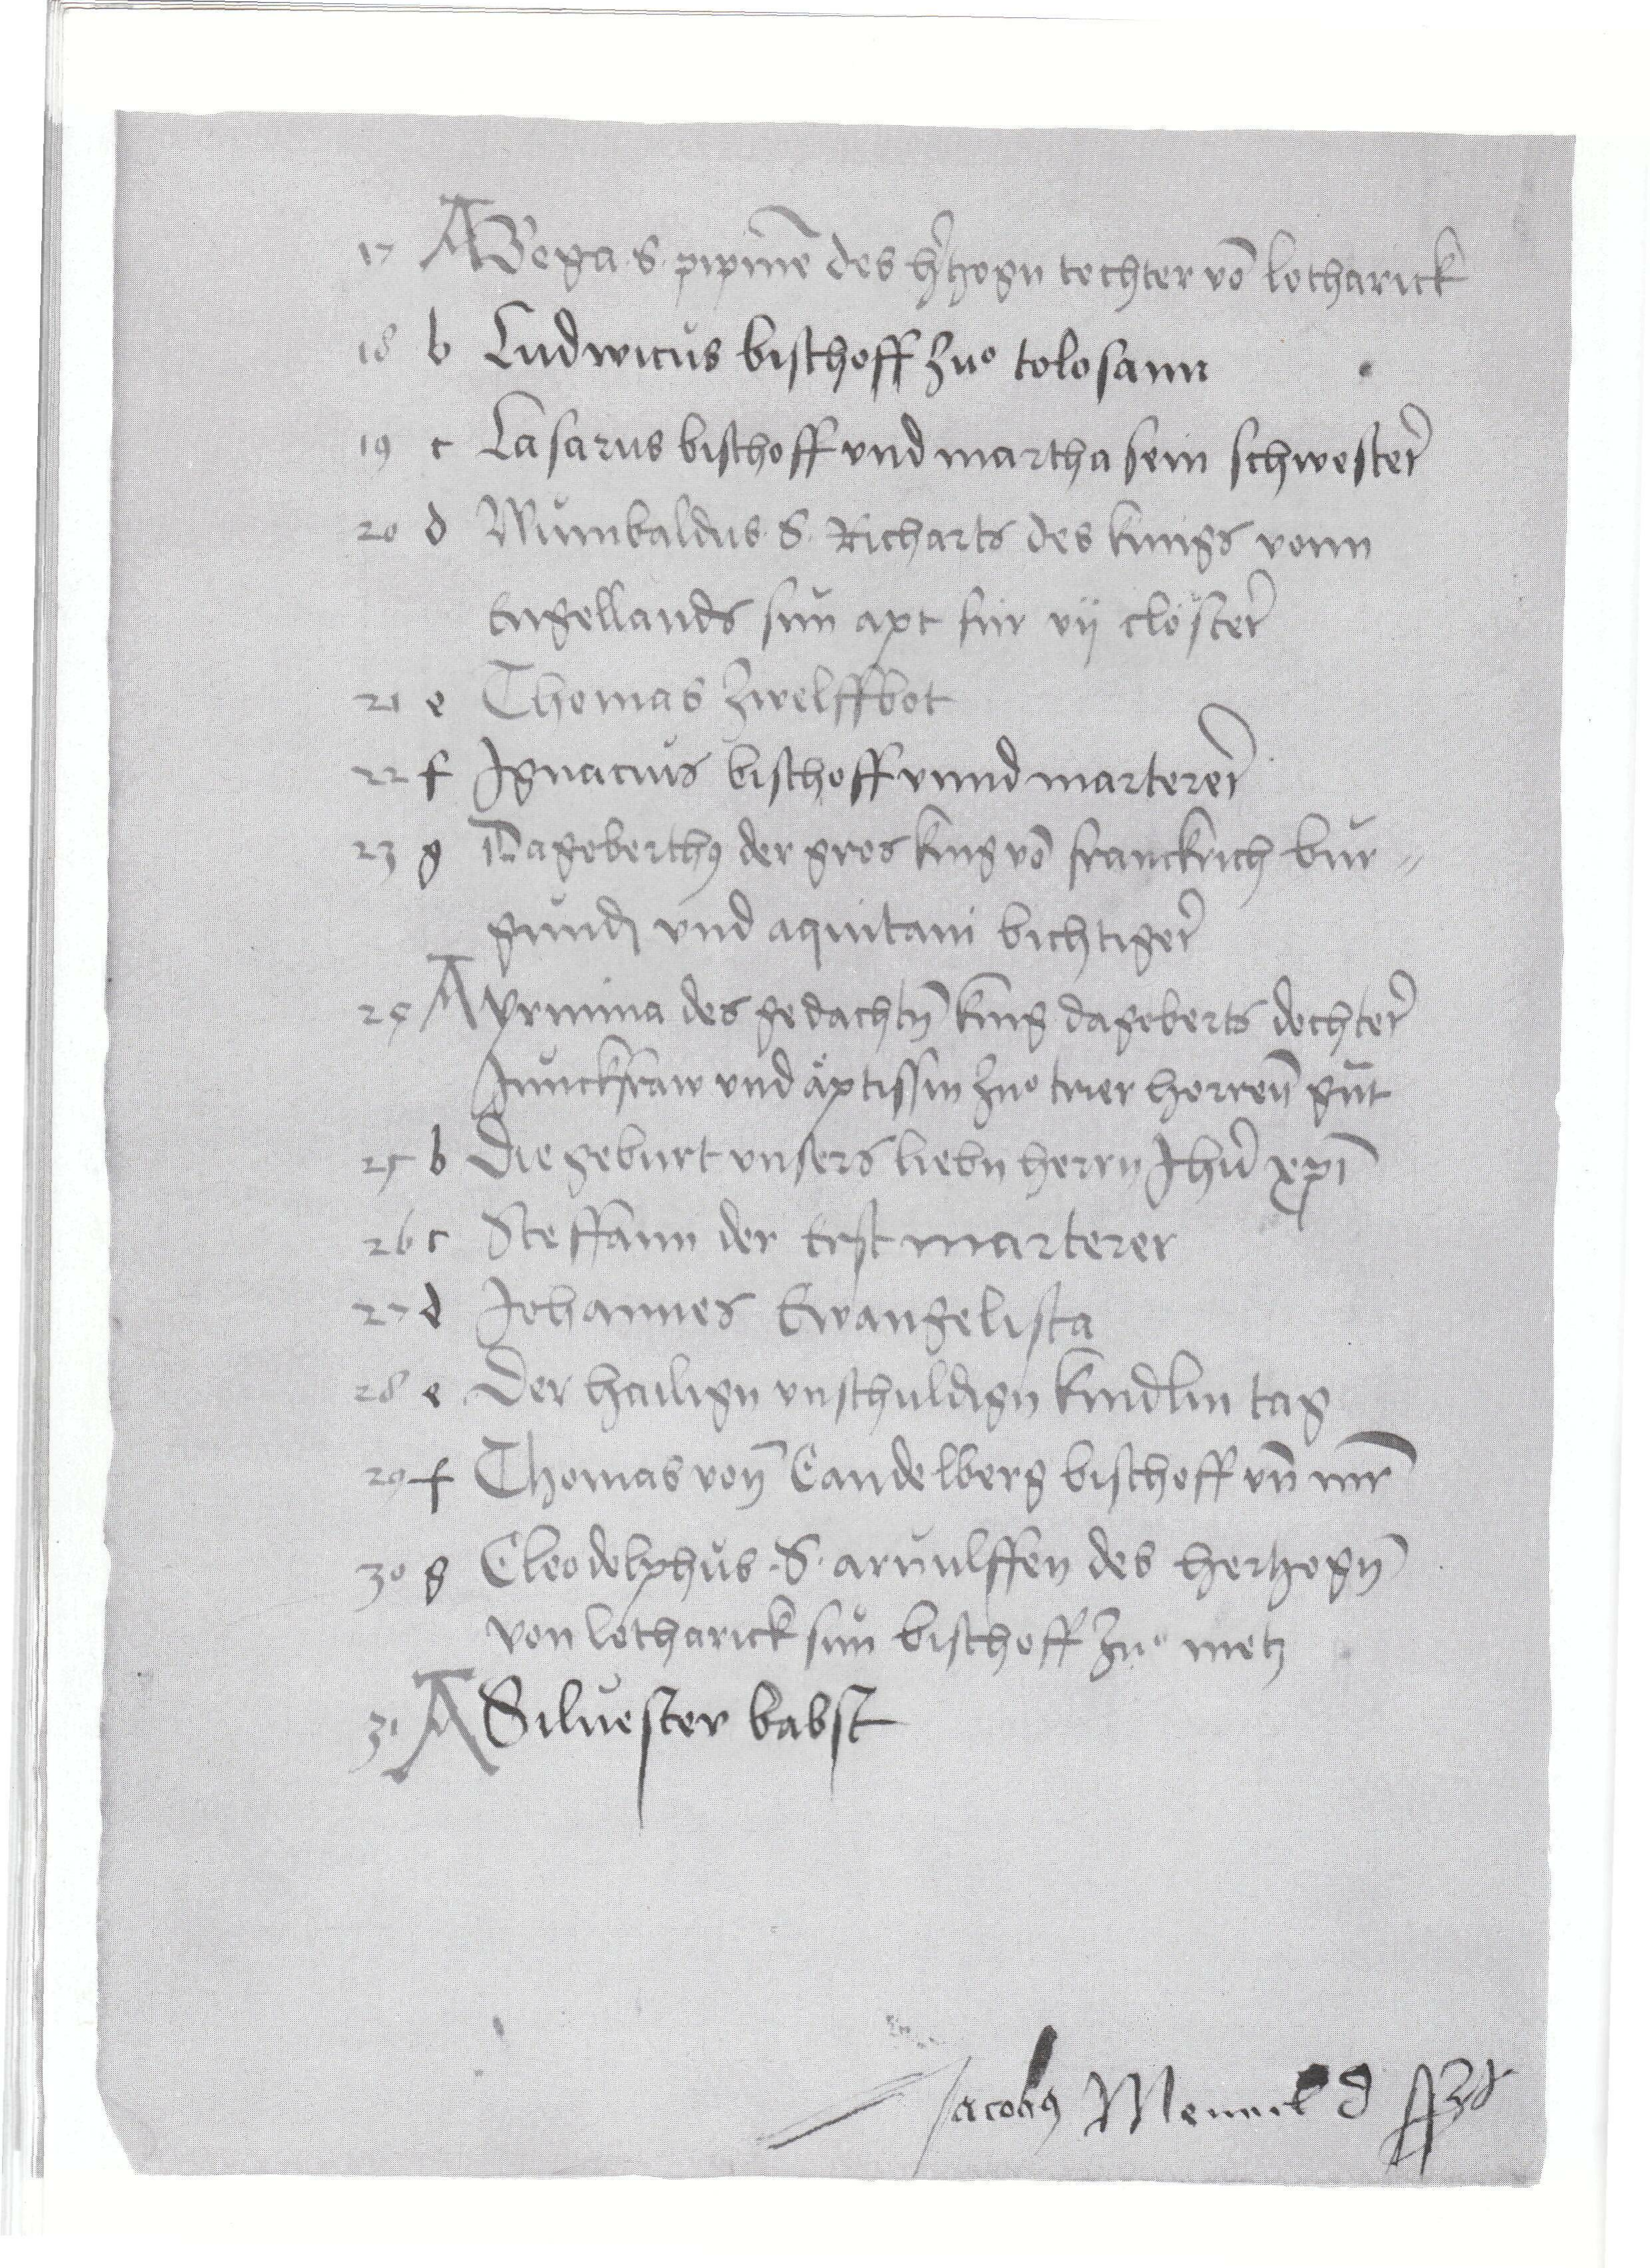 17 A Bega S. pipinē des h'tzogn tochter vō lotharick
18 b Ludwicus bischoff zuͦ tolosann
19 c Lasarus bischoff vnd martha sein schwester
20 d Wunibaldus S. Richarts des kunigs vonn
Engellands sun apt für vij clöster
21 e Thomas zwelffbot
22 f Ignacius bischoff vnnd marterer
23 g Dagoberthꝰ der gros king vō franckrich bur⸗
gundj vnd aquitani bichtiger
24 A Yrmina des gedachtn̄ king dagoberts dochter
Junckfraw vnd äptissin zuͦ trier horreū gūt
25 b Die geburt vnsers liebn herrn Jhū xp̄i
26 c Steffann der Erst marterer
27 d Johannes Ewangelista
28 e Der hailign vnschuldign kindlin tag
29 f Thomas von̄ Candelberg bischoff vn̄ mr̄
30 g Cleodolphus S. arnulffen des hertzogn̄
von lotharick sun bischoff zuͦ metz
31 A Siluester babst
Jacobꝰ Mennel d